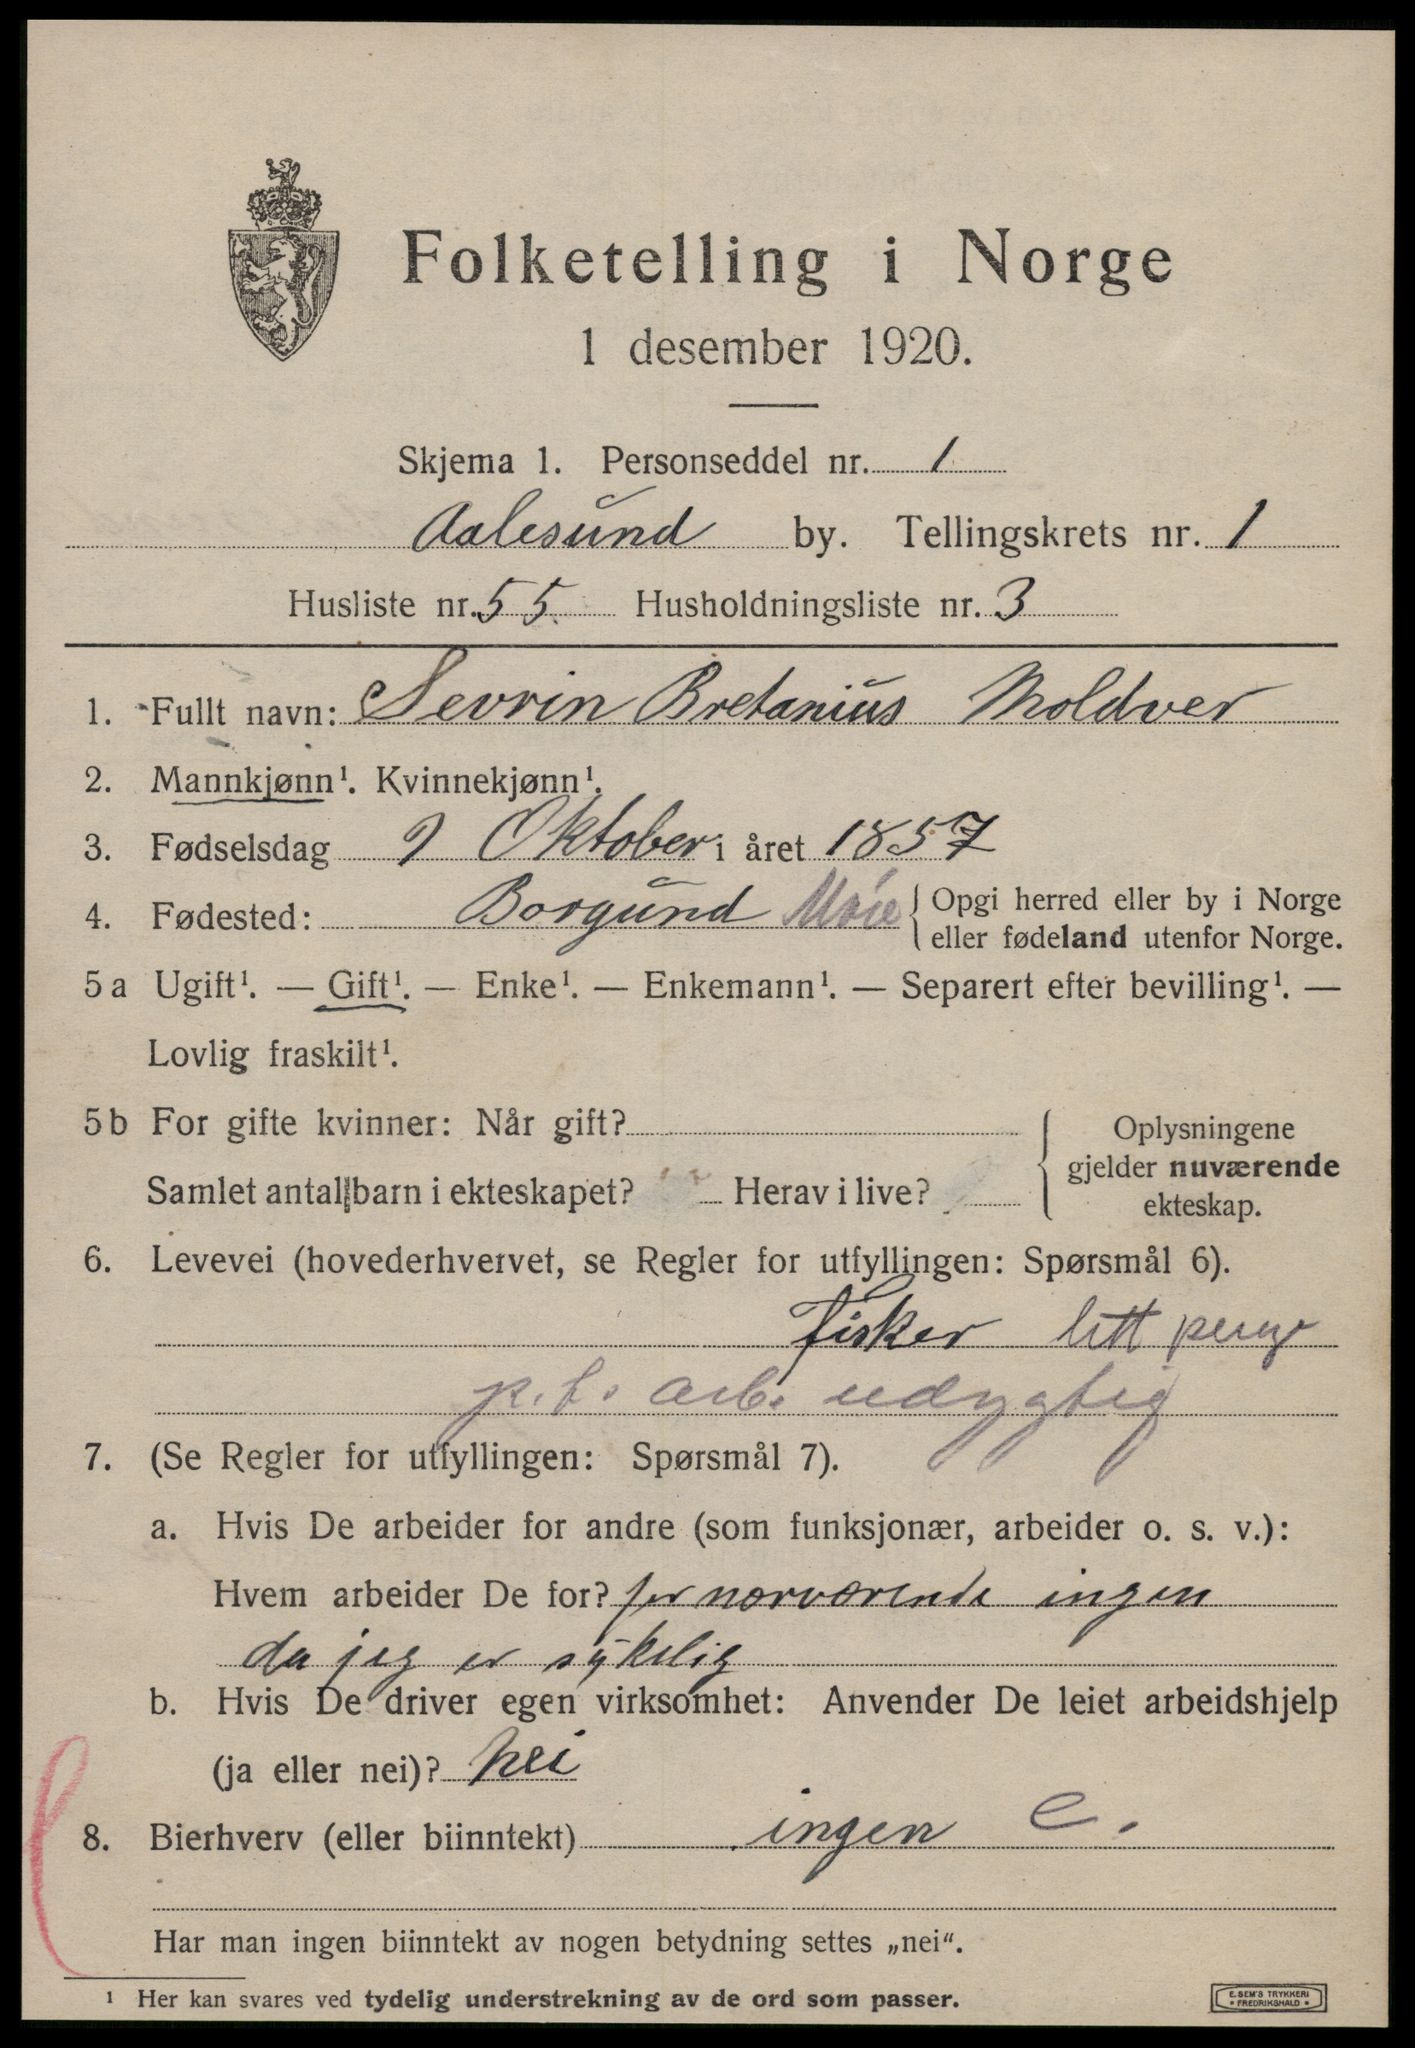 Folketelling i Norge
1 desember 1920.
Skjema 1. Personseddel nr. 1
Aalesund by. Tellingskrets nr. 1
Husliste nr. 55 Husholdningsliste nr. 3
1. Fullt navn: Sevrin Bretanius Moldver
2. Mannkjønn¹. Kvinnekjønn¹.
3. Fødselsdag 9 Oktober i året 1857
4. Fødested: Borgund Møre { Opgi herred eller by i Norge
eller fødeland utenfor Norge.
5 a Ugift¹. — Gift¹. — Enke¹. — Enkemann¹. — Separert efter bevilling¹. —
Lovlig fraskilt¹.
5 b For gifte kvinner: Når gift?
Samlet antall barn i ekteskapet? Herav i live?
Oplysningene
gjelder nuværende
ekteskap.
6. Levevei (hovederhvervet, se Regler for utfyllingen: Spørsmål 6).
Fisker litt
p.t. arb. udygtig
7. (Se Regler for utfyllingen: Spørsmål 7).
a. Hvis De arbeider for andre (som funksjonær, arbeider o. s. v.):
Hvem arbeider De for? for nærværende ingen
da jeg er sykelig
b. Hvis De driver egen virksomhet: Anvender De leiet arbeidshjelp
(ja eller nei)? nei
8. Bierhverv (eller biinntekt) ingen e.
Har man ingen biinntekt av nogen betydning settes „nei“.
¹ Her kan svares ved tydelig understrekning av de ord som passer.
E. SEM'S TRYKKERI
• FREDRIKSHALD •